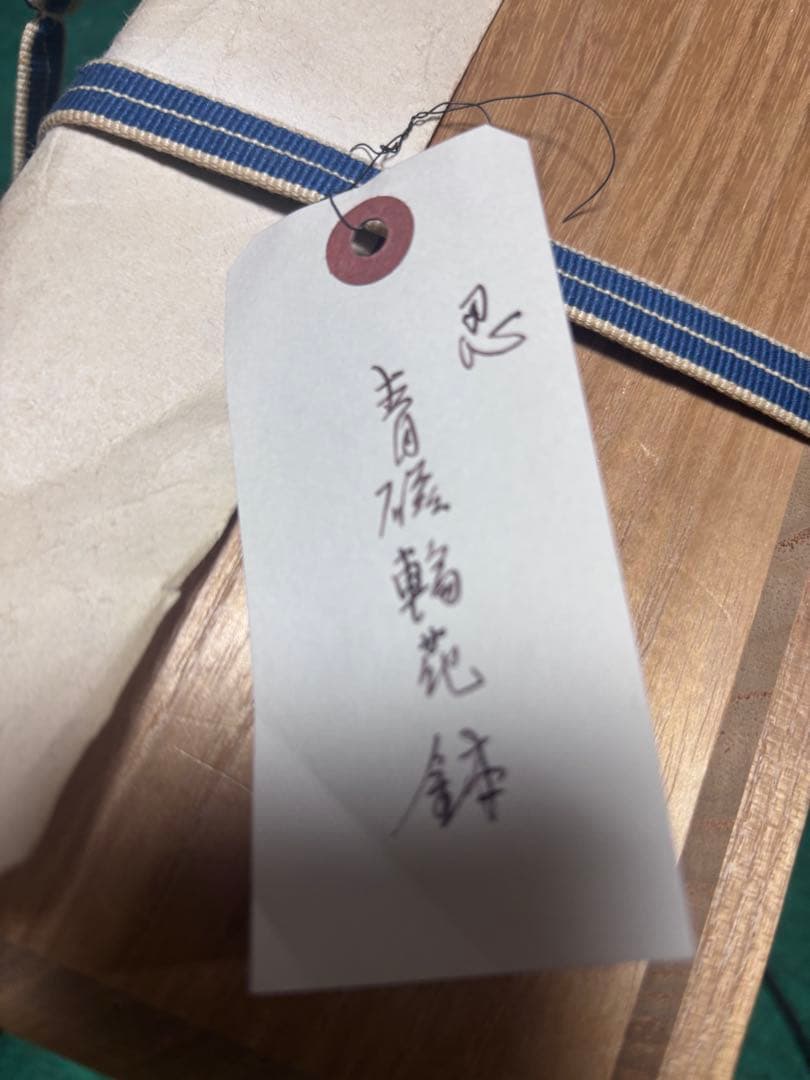 青磁輪花鉢